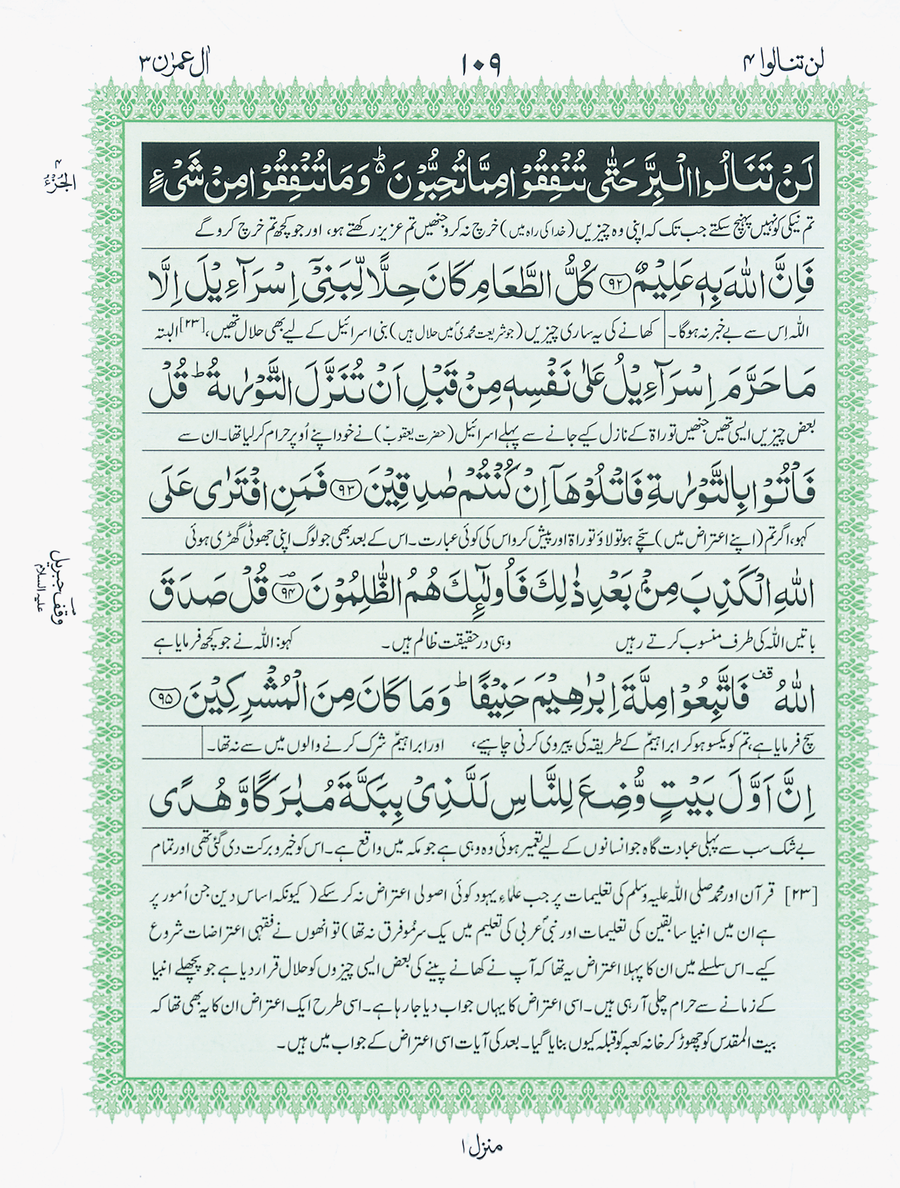 لن تنالوا ۴
۱۰۹
اٰل عمرٰن ۳
۴
الجُزْءُ
لَنْ تَنَالُوا الْبِرَّ حَتّٰى تُنْفِقُوْا مِمَّا تُحِبُّوْنَ ؕ وَمَا تُنْفِقُوْا مِنْ شَیْءٍ
تم نیکی کو نہیں پہنچ سکتے جب تک کہ اپنی وہ چیزیں (خدا کی راہ میں) خرچ نہ کرو جنھیں تم عزیز رکھتے ہو، اور جو کچھ تم خرچ کرو گے
فَاِنَّ اللّٰهَ بِهٖ عَلِیْمٌ ﴿۹۲﴾ كُلُّ الطَّعَامِ كَانَ حِلًّا لِّبَنِیْۤ اِسْرَآءِیْلَ اِلَّا
اللہ اس سے بے خبر نہ ہوگا۔ کھانے کی یہ ساری چیزیں (جو شریعت محمدیؐ میں حلال ہیں) بنی اسرائیل کے لیے بھی حلال تھیں،[۲۳] البتہ
مَا حَرَّمَ اِسْرَآءِیْلُ عَلٰى نَفْسِهٖ مِنْ قَبْلِ اَنْ تُنَزَّلَ التَّوْرٰىةُ ؕ قُلْ
بعض چیزیں ایسی تھیں جنھیں توراۃ کے نازل کیے جانے سے پہلے اسرائیل (حضرت یعقوبؑ) نے خود اپنے اُوپر حرام کر لیا تھا۔ ان سے
فَاْتُوْا بِالتَّوْرٰىةِ فَاتْلُوْهَاۤ اِنْ كُنْتُمْ صٰدِقِیْنَ ﴿۹۳﴾ فَمَنِ افْتَرٰى عَلَى
کہو، اگر تم (اپنے اعتراض میں) سچّے ہو تو لاؤ توراۃ اور پیش کرو اس کی کوئی عبارت۔ اس کے بعد بھی جو لوگ اپنی جھوٹی گھڑی ہوئی
اللّٰهِ الْكَذِبَ مِنْۢ بَعْدِ ذٰلِكَ فَاُولٰٓئِكَ هُمُ الظّٰلِمُوْنَ ﴿۹۴﴾ؔ قُلْ صَدَقَ
باتیں اللہ کی طرف منسوب کرتے رہیں وہی در حقیقت ظالم ہیں۔ کہو: اللہ نے جو کچھ فرمایا ہے
وقف جبریل
علیہ السلام
اللّٰهُ ۫ قف فَاتَّبِعُوْا مِلَّةَ اِبْرٰهِیْمَ حَنِیْفًا ؕ وَمَا كَانَ مِنَ الْمُشْرِكِیْنَ ﴿۹۵﴾
سچ فرمایا ہے، تم کو یکسو ہو کر ابراہیمؑ کے طریقہ کی پیروی کرنی چاہیے، اور ابراہیمؑ شرک کرنے والوں میں سے نہ تھا۔
اِنَّ اَوَّلَ بَیْتٍ وُّضِعَ لِلنَّاسِ لَلَّذِیْ بِبَكَّةَ مُبٰرَكًا وَّهُدًى
بے شک سب سے پہلی عبادت گاہ جو انسانوں کے لیے تعمیر ہوئی وہ وہی ہے جو مکہ میں واقع ہے۔ اس کو خیر و برکت دی گئی تھی اور تمام
[۲۳] قرآن اور محمد صلی اللہ علیہ وسلم کی تعلیمات پر جب علماءِ یہود کوئی اصولی اعتراض نہ کر سکے (کیونکہ اساس دین جن اُمور پر
ہے ان میں انبیا سابقین کی تعلیمات اور نبی عربیؐ کی تعلیم میں یک سرِ مُو فرق نہ تھا) تو انھوں نے فقہی اعتراضات شروع
کیے۔ اس سلسلے میں ان کا پہلا اعتراض یہ تھا کہ آپ نے کھانے پینے کی بعض ایسی چیزوں کو حلال قرار دیا ہے جو پچھلے انبیا
کے زمانے سے حرام چلی آ رہی ہیں۔ اسی اعتراض کا یہاں جواب دیا جا رہا ہے۔ اسی طرح ایک اعتراض ان کا یہ بھی تھا کہ
بیت المقدس کو چھوڑ کر خانہ کعبہ کو قبلہ کیوں بنایا گیا۔ بعد کی آیات اسی اعتراض کے جواب میں ہیں۔
منزل ۱